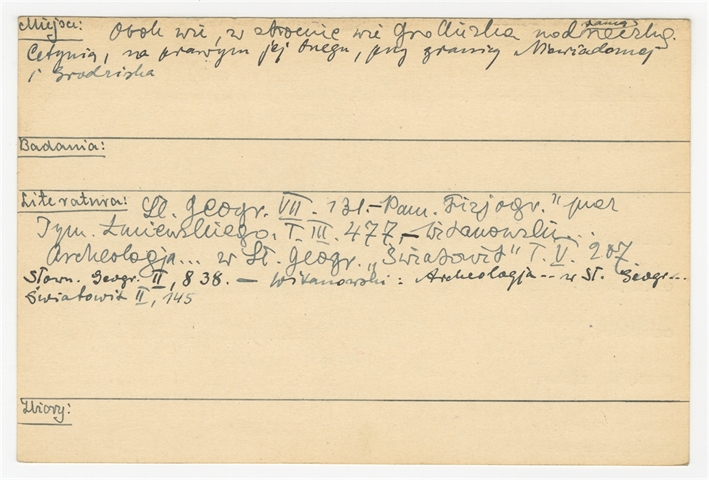 Miejsce: Obok wsi, w stronie wsi Grodziska nad samą rzeczką
Cetynią, na prawym jej brzegu, przy granicy Niewiadomej
i Grodziska
Badania:
Literatura: Sł. Geogr. VII. 131.- Pam. Fizjogr." przez
Tym. Łuniewskiego. T. III. 477, - Witanowski...
Archeologja... w Sł. Geogr. „Światowit" T. V. 207.
Słown. Geogr. II, 838. - Witanowski: Archeologja... w Sł. Geogr...
Światowit II, 145
Zbiory: